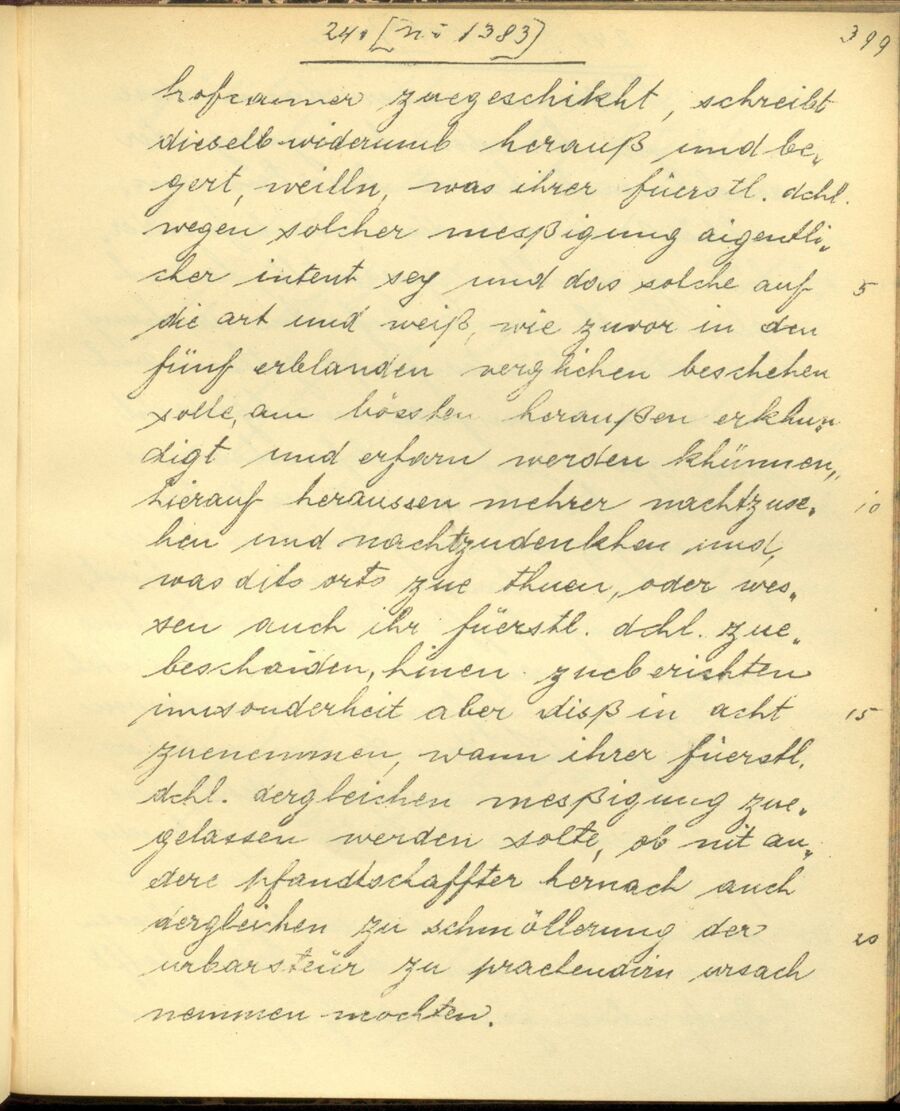 24. [No 1383]
399
hofcamer zuegeschikht, schreibt
dieselb widerumb herauß und be„
gert, weilln, was ihrer füerstl. dchl.
wegen solcher mesßigung aigentli„
cher intent sey und das solche auf
5
die art und weiß, wie zuvor in den
fünf erblanden verglichen beschehen
solle, am bössten heraußen erkhun„
digt und erfarn werden khünnen,
hierauf heraussen mehrer nachtzuse„
10
hen und nachtzudenkhen und,
was dits orts zue thuen, oder wes„
sen auch ihr füerstl. dchl. zue„
beschaiden, hinen zueberichten
inn sonderheit aber disß in acht
15
zuenemmen, wann ihrer füerstl.
dchl. dergleichen mesßigung zue„
gelassen werden solte, ob nit an„
dere pfandtschaffter hernach auch
dergleichen zu schmöllerung der
20
urbarsteür zu praetendirn ursach
nemmen mochten.